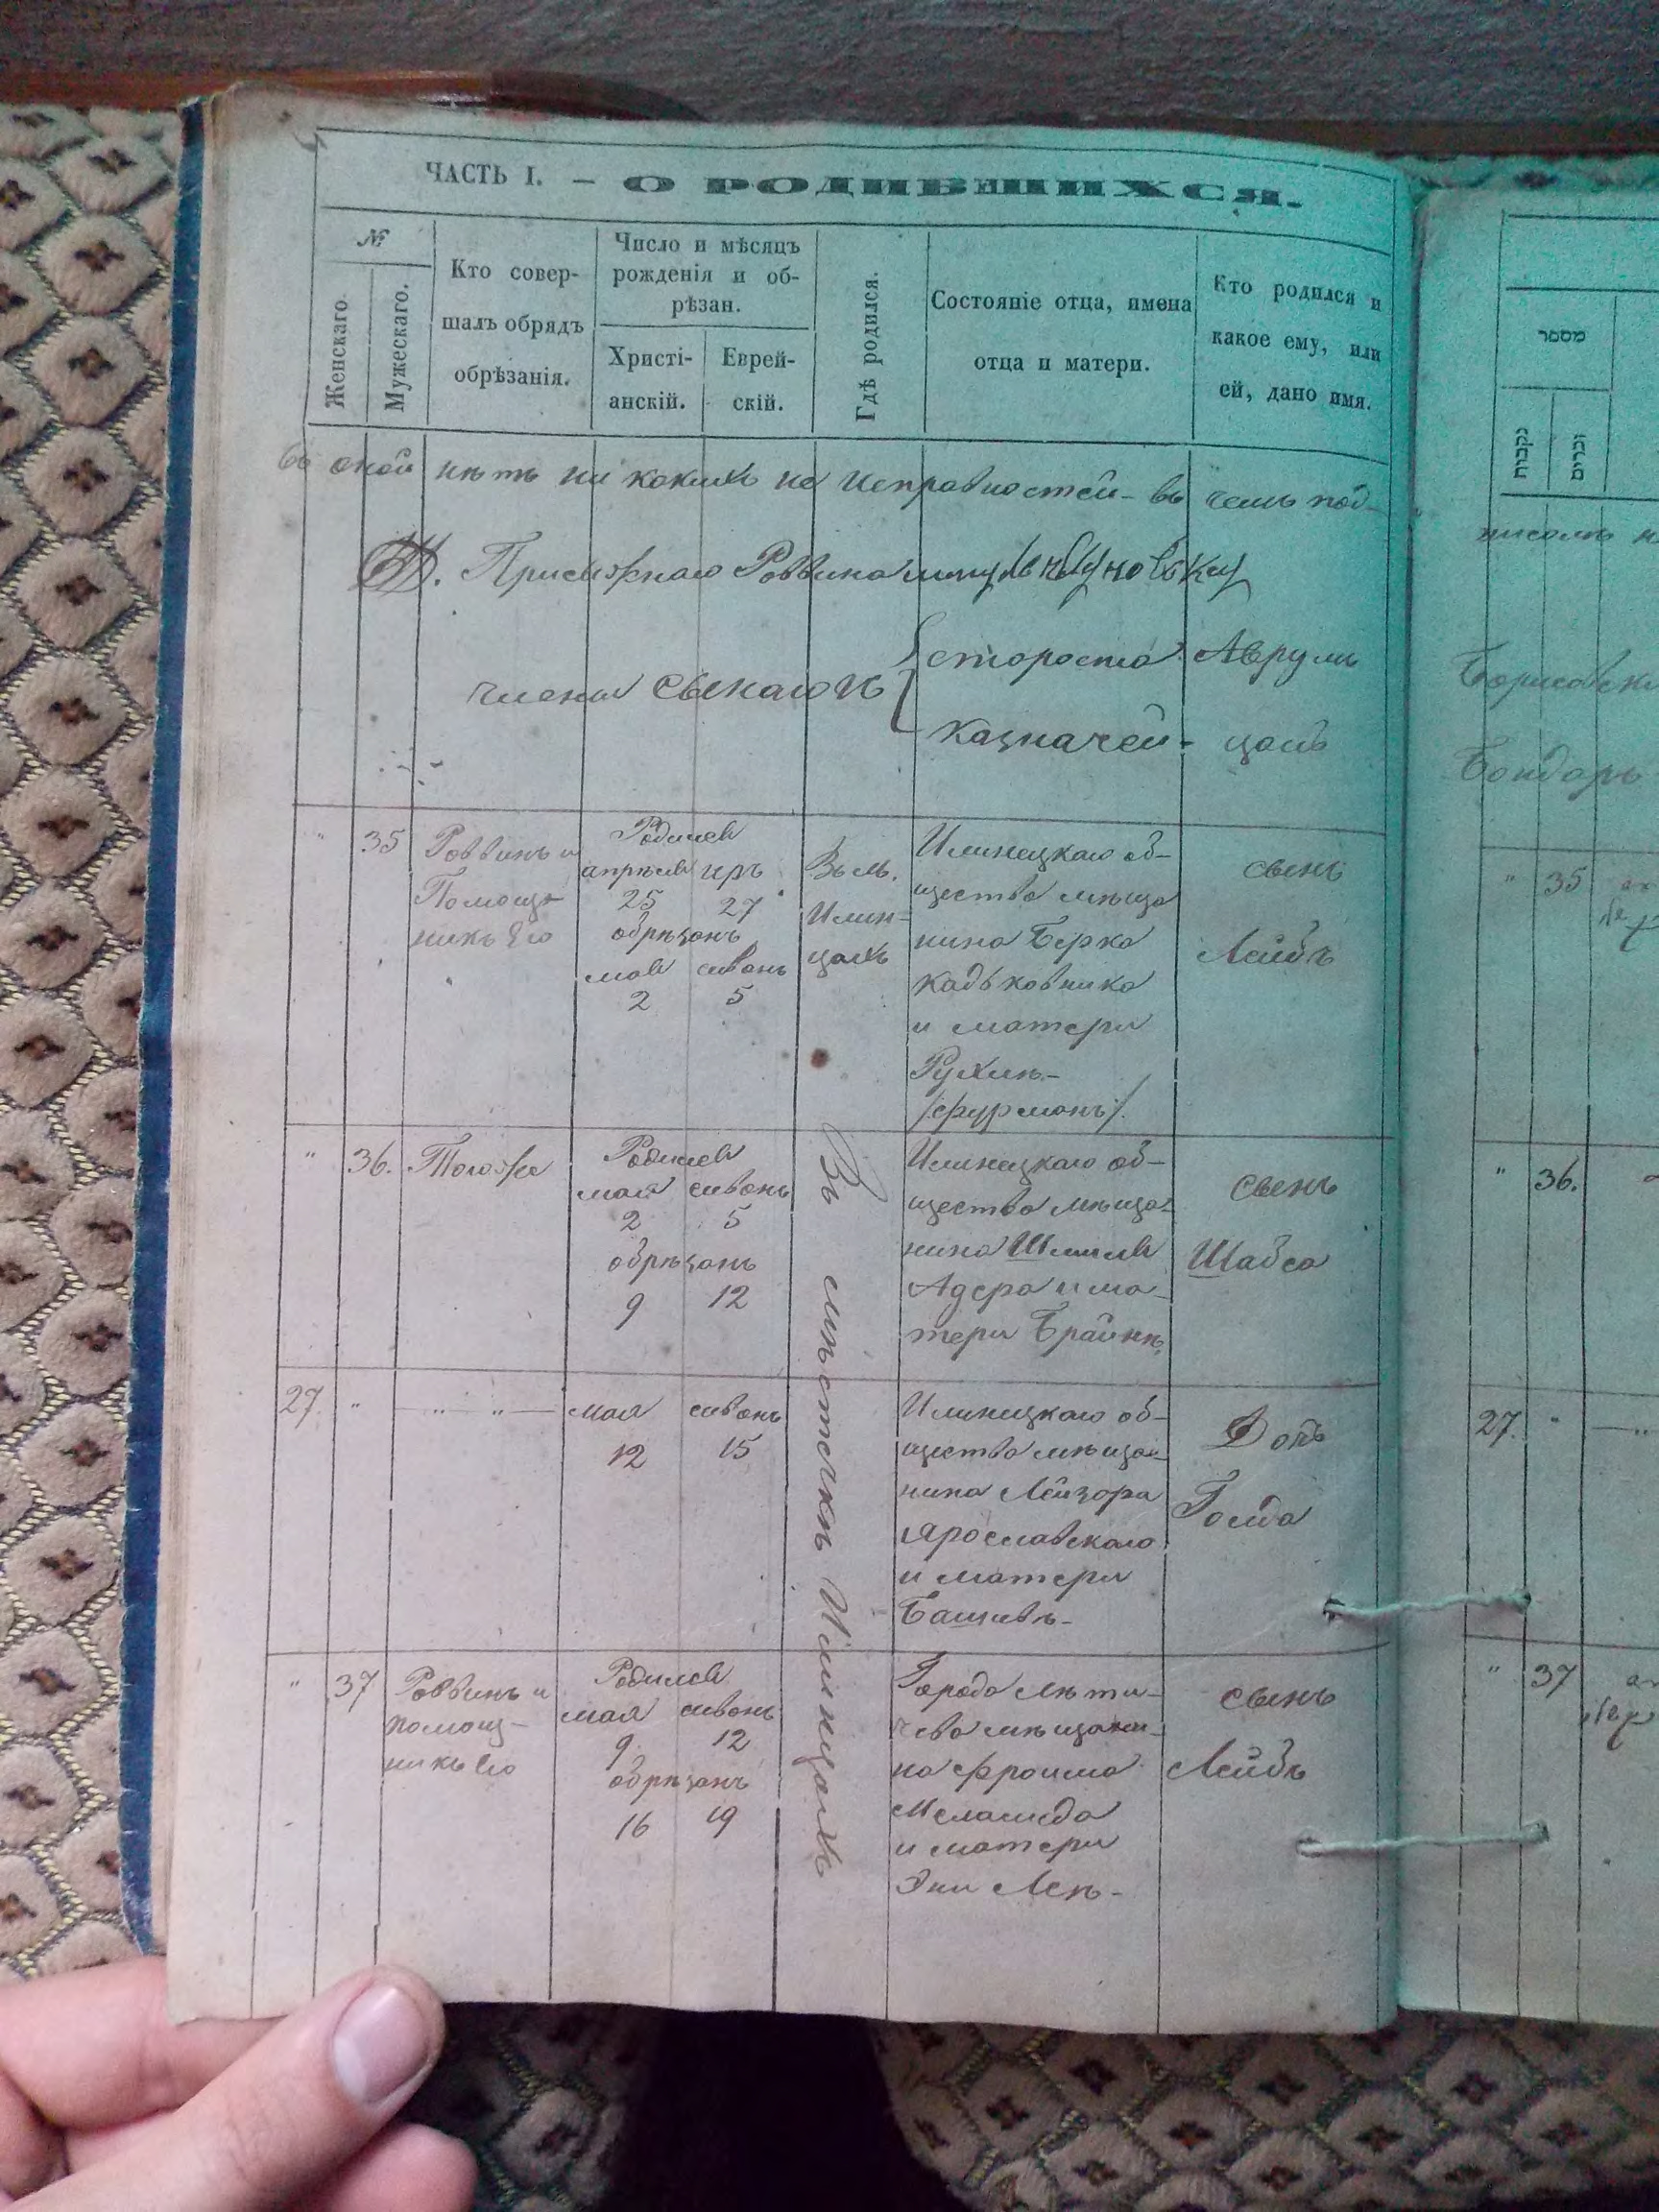 ЧАСТЬ I. — О РОДИВШИХСЯ.
№
Женскаго.
Мужескаго.
Кто совер-
шалъ обрядъ
обрѣзанія.
Число и мѣсяцъ
рожденія и об-
рѣзан.
Христі-
анскій.
Еврей-
скій.
Гдѣ родился.
Состояніе отца, имена
отца и матери.
Кто родился и
какое ему, или
ей, дано имя.
въ оной нѣтъ ни какихъ не исправностей - въ чемъ под-
Присяжнаго Раввина
члены
староста Аврумъ
казначей -
" 35
Раввинъ и
Помощ-
никъ Его
Родился
апрѣля иръ
25 27
обрѣзанъ
мая сивонъ
2 5
Въ м.
Илин-
цахъ
Илинецкаго об-
щества мѣща
нина Берка
Кадьковника
и матери
Рухли-
/фурманъ/.
сынъ
Лейбъ
" 36. Тогоже
Родился
мая сивонъ
2 5
обрѣзанъ
9 12
Въ мѣстечкѣ Илинцахъ
Илинецкаго об-
щества мѣща-
нина Шмиля
Адера и ма-
тери Брайнѣ
сынъ
Шабса
27. " — " — " —
мая сивонъ
12 15
Илинецкаго об-
щества мѣща-
нина Лейзора
Ярославскаго
и матери
Башивѣ-
Дочь
Голда
" 37
Раввинъ и
помощ-
никъ Его
Родился
мая сивонъ
9 12
обрѣзанъ
16 19
Города Лѣти-
чева мѣщани-
на Фроима
Меламеда
и матери
Эни Леѣ-
сынъ
Лейбъ
מספר
נקבות
זכרים
писомъ
Бондаръ
" 35
" 36.
27. "
" 37